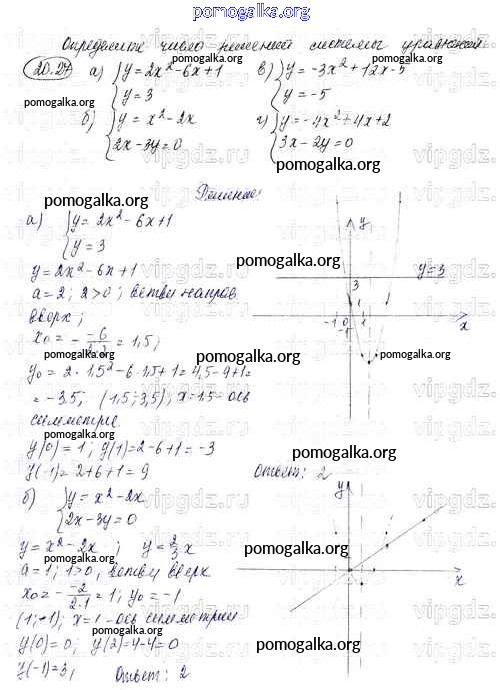 pomogalka.org
Определите число решений системы уравнений
20.27 а) { y = 2x² - 6x + 1 в) { y = -3x² + 12x - 5
y = 3 y = -5
б) { y = x² - 2x г) { y = -4x² + 4x + 2
2x - 3y = 0 3x - 2y = 0
Решение:
а) { y = 2x² - 6x + 1
y = 3
y = 2x² - 6x + 1
a = 2; 2 > 0; ветви направ.
вверх;
x₀ = - -6/2·2 = 1,5;
y₀ = 2 · 1,5² - 6 · 1,5 + 1 = 4,5 - 9 + 1 =
= -3,5; (1,5; 3,5); x = 1,5 - ось
симметрие
y(0) = 1; y(1) = 2 - 6 + 1 = -3
y(-1) = 2 + 6 + 1 = 9
y
y = 3
3
1
-1 0 1 x
-1
Ответ: 2
б) { y = x² - 2x
2x - 3y = 0
y = x² - 2x; y = 2/3 x
a = 1; 1 > 0, ветви вверх
x₀ = - -2/2·1 = 1; y₀ = -1
(1; -1); x = 1 - ось симметрии
y(0) = 0; y(2) = 4 - 4 = 0
y(-1) = 3, Ответ: 2
y
x